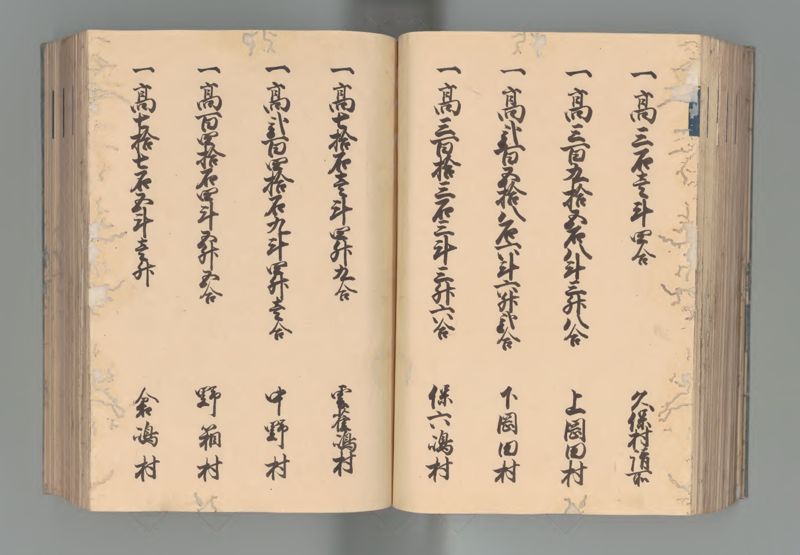 一高三石壱斗四合 久保村
一高三百五拾五石八斗三升八合 上岡田村
一高弐百五拾八石六斗六升弐合 下岡田村
一高三百拾三石三斗三升六合 保六嶋村
一高七拾石壱斗四升九合 雲雀嶋村
一高弐百四拾石九斗四升壱合 中野村
一高百四拾石四斗五升五合 野箱村
一高七拾七石五斗壱升 倉嶋村